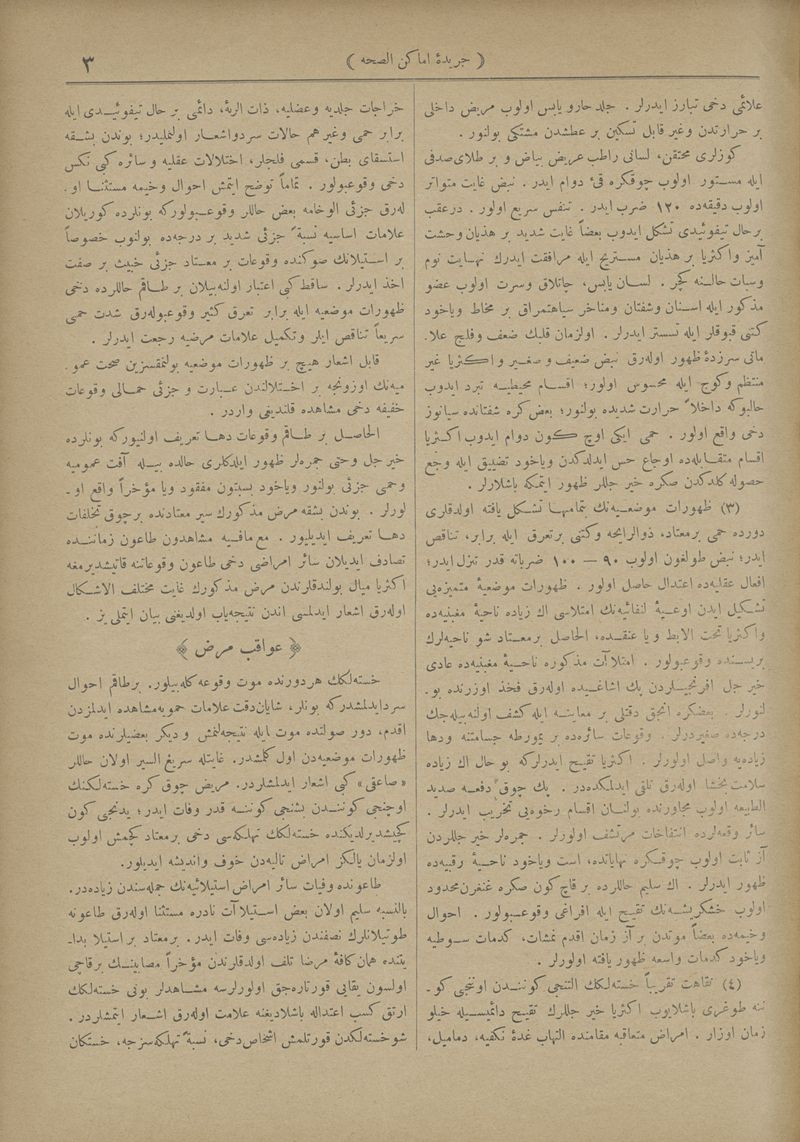 ( جريدهٔ اماكن الصحه )
٣
علائمی دخی تبارز ایدرلر . جلد حار و یابس اولوب مریض داخلی
بر حرارتدن وغیر قابل تسکین بر عطشدن مشتکی بولنور .
کوزلری محتقن، لسانی راطب عریض بیاض و بر طلای صدفی
ایله مستور اولوب چوقکره قئ دوام ایدر . نبض غایت متواتر
اولوب دقیقه‌ده ١٢٠ ضرب ایدر . تنفس سریع اولور . درعقب
برحال تیفوئیدی تشکل ایدوب بعضاً غایت شدید بر هذیان وحشت
آمیز واکثریا بر هذیان مستریح ایله مرافقت ایدرك نهایت نوم
وسبات حالنه کچر . لسان یابس، چاتلاق وسرت اولوب عضو
مذکور ایله اسنان وشفتان ومناخر سیاهتمراق بر مخاط ویاخود
کتنی قبوقلر ایله تستر ایدرلر . اولزمان قلبك ضعف وفلج علا-
ماتی سرزدهٔ ظهور اوله‌رق نبض ضعیف و صغیر و اکثریا غیر
منتظم وکوج ایله محسوس اولور؛ اقسام محیطیه تبرد ایدوب
حالبوکه داخلاً حرارت شدیده بولنور؛ بعض کره شفتانده سیانوز
دخی واقع اولور . حمی ایکی اوچ کون دوام ایدوب اکثریا
اقسام متقابله‌ده اوجاع حس ایدلدکدن ویاخود تضییق ایله وجع
حصوله کلدکدن صکره خیر جللر ظهور ایتمکه باشلارلر .
(٣) ظهورات موضعیه‌نك بتمامها تشکل یافته اولدقلری
دورده حمی برمعتاد، ذوالرایحه وکتنی برتعرق ایله برابر، تناقص
ایدر؛ نبض طولغون اولوب ٩٠ — ١٠٠ ضرباته قدر تنزل ایدر؛
افعال عقلیه‌ده اعتدال حاصل اولور . ظهورات موضعیهٔ متمیزه‌یی
تشکیل ایدن اوعیهٔ لنفائیه‌نك امتلاسی اك زیاده ناحیهٔ مغبنیه‌ده
واکثریا تحت الابط ویا عنقده، الحاصل برمعتاد شو ناحیه‌لرك
بریسنده وقوعبولور . امتلاآت مذکوره ناحیهٔ مغبنیه‌ده عادی
خیر جل افرنجیلردن پك اشاغیده اوله‌رق فخذ اوزرنده بو-
لنورلر . بعضکره انجق دقتلی بر معاینه ایله کشف اولنه‌بیله‌جك
درجه‌ده صغیردرلر . وقوعات سائره‌ده بر یمورطه جسامتنه ودها
زیاده‌یه واصل اولورلر . اکثریا تقیح ایدرلرکه بو حال اك زیاده
سلامت‌بخشا اوله‌رق تلقی ایدلمکده‌در . پك چوق دفعه صدید
الطبیعه اولوب مجاورنده بولنان اقسام رخوه‌یی تخریب ایدرلر .
سائر وقعه‌لرده انتفاخات مرتشف اولورلر . جمره‌لر خیر جللردن
آز ثابت اولوب چوقکره نهایاتده، است ویاخود ناحیهٔ رقبیه‌ده
ظهور ایدرلر . اك سلیم حاللرده بر قاچ کون صکره غنغرن محدود
اولوب خشکریشه‌نك تقیح ایله افراغی وقوعبولور . احوال
وخیمه‌ده بعضاً موتدن بر آز زمان اقدم نمشات، کدمات سوطیه
ویاخود کدمات واسعه ظهور یافته اولورلر .
(٤) نقاهت تقریباً خسته‌لکك التنجی کونندن اوننجی کو-
ننه طوغری باشلایوب اکثریا خیر جللرك تقیح دائمیسیله خیلو
زمان اوزار . امراض متعاقبه مقامنده التهاب غدهٔ نکفیه، دمامیل،
خراجات جلدیه وعضلیه، ذات الریه، دائمی بر حال تیفوئیدی ایله
برابر حمی وغیر هم حالات سردواشعار اولنملیدر؛ بوندن بشقه
استسقای بطن، قسمی فلجلر، اختلالات عقلیه و سائره کبی نکس
دخی وقوعبولور . تماماً توضح ایتمش احوال وخیمه مستثنا او-
له‌رق جزئی الوخامه بعض حاللر وقوعبولورکه بونلرده کوریلان
علامات اساسیه نسبةً جزئی شدید بر درجه‌ده بولنوب خصوصاً
بر استیلانك صوکنده وقوعات بر معتاد جزئی خبیث بر صفت
اخذ ایدرلر . ساقط کبی اعتبار اولنه‌بیلان بر طاقم حاللرده دخی
ظهورات موضعیه ایله برابر تعرق کثیر وقوعبوله‌رق شدت حمی
سریعاً تناقص ایلر وتکمیل علامات مرضیه رجعت ایدرلر .
قابل اشعار هیچ بر ظهورات موضعیه بولنمقسزین صحت عمو-
میه‌نك اوزونجه بر اختلالندن عبارت و جزئی حمالی وقوعات
خفیفه دخی مشاهده قلندیغی واردر .
الحاصل بر طاقم وقوعات دها تعریف اولنیورکه بونلرده
خیر جل وحتی جمره‌لر ظهور ایلدکلری حالده بیله آفت عمومیه
وحمی جزئی بولنور ویاخود بسبتون مفقود ویا مؤخراً واقع او-
لورلر . بوندن بشقه مرض مذکورك سیر معتادنده برچوق تخلفات
دها تعریف ایدیلیور . مع مافیه مشاهدون طاعون زماننده
تصادف ایدیلان سائر امراضی دخی طاعون وقوعاتنه قاتیشدیرمغه
اکثریا میال بولندقلرندن مرض مذکورك غایت مختلف الاشکال
اوله‌رق اشعار ایدلمسی اندن نتیجه‌یاب اولدیغنی بیان ایتملی یز .
﴿ عواقب مرض ﴾
خسته‌لكك هر دورنده موت وقوعه کله‌بیلور. برطاقم احوال
سردایدلمشدرکه بونلر، شایان‌دقت علامات حمویه مشاهده ایدلمزدن
اقدم، دور صولتده موت ایله نتیجه‌لنمش و دیکر بعضیلرنده موت
ظهورات موضعیه‌دن اول کلمشدر. غایتله سریع السیر اولان حاللر
«صاعقی» کبی اشعار ایدلمشلردر. مریض چوق کره خسته‌لکنك
اوچنجی کونندن بشنجی کوننه قدر وفات ایدر؛ یدنجی کون
کچیشدیرلدیکنده خسته‌لکك تهلکه‌سی دخی بر معتاد کچمش اولوب
اولزمان یالکز امراض تالیه‌دن خوف واندیشه ایدیلور.
طاعونده وفیات سائر امراض استیلائیه‌نك جمله‌سندن زیاده‌در.
بالنسبه سلیم اولان بعض استیلاآت نادره مستثنا اوله‌رق طاعونه
طوتیلانلرك نصفندن زیاده‌سی وفات ایدر. برمعتاد بر استیلا بدا-
یتنده همان کافهٔ مرضا تلف اولدقلرندن مؤخراً مصابینك برقاچی
اولسون یقایی قورتاره‌جق اولورلرسه مشاهدلر بونی خسته‌لکك
ارتق کسب اعتداله باشلادیغنه علامت اوله‌رق اشعار ایتمشلردر .
شو خسته‌لکدن قورتلمش اشخاص دخی، نسبةً تهلکه‌سزجه، خستکان